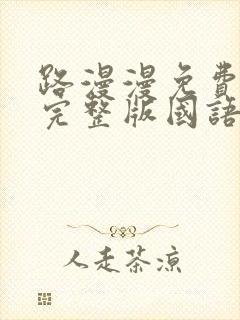 路漫漫免費
完整版國語
人走茶凉